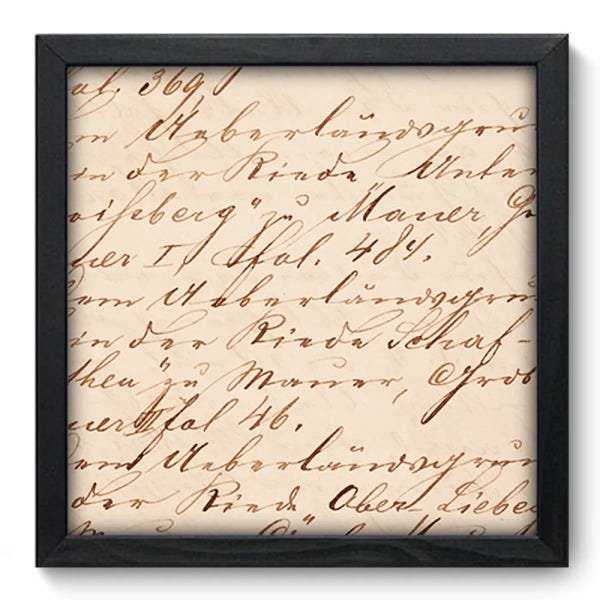 ol. 369,
em Ueberländsgrun
in der Riede Unter
oißberg" zu Mauer, Gr
uer I, Fol. 484.
dem Ueberländsgrun
in der Riede Schaf-
then" zu Mauer, Grob
uer II Fol 46.
dem Ueberländsgrun
der Riede Ober-Liebe